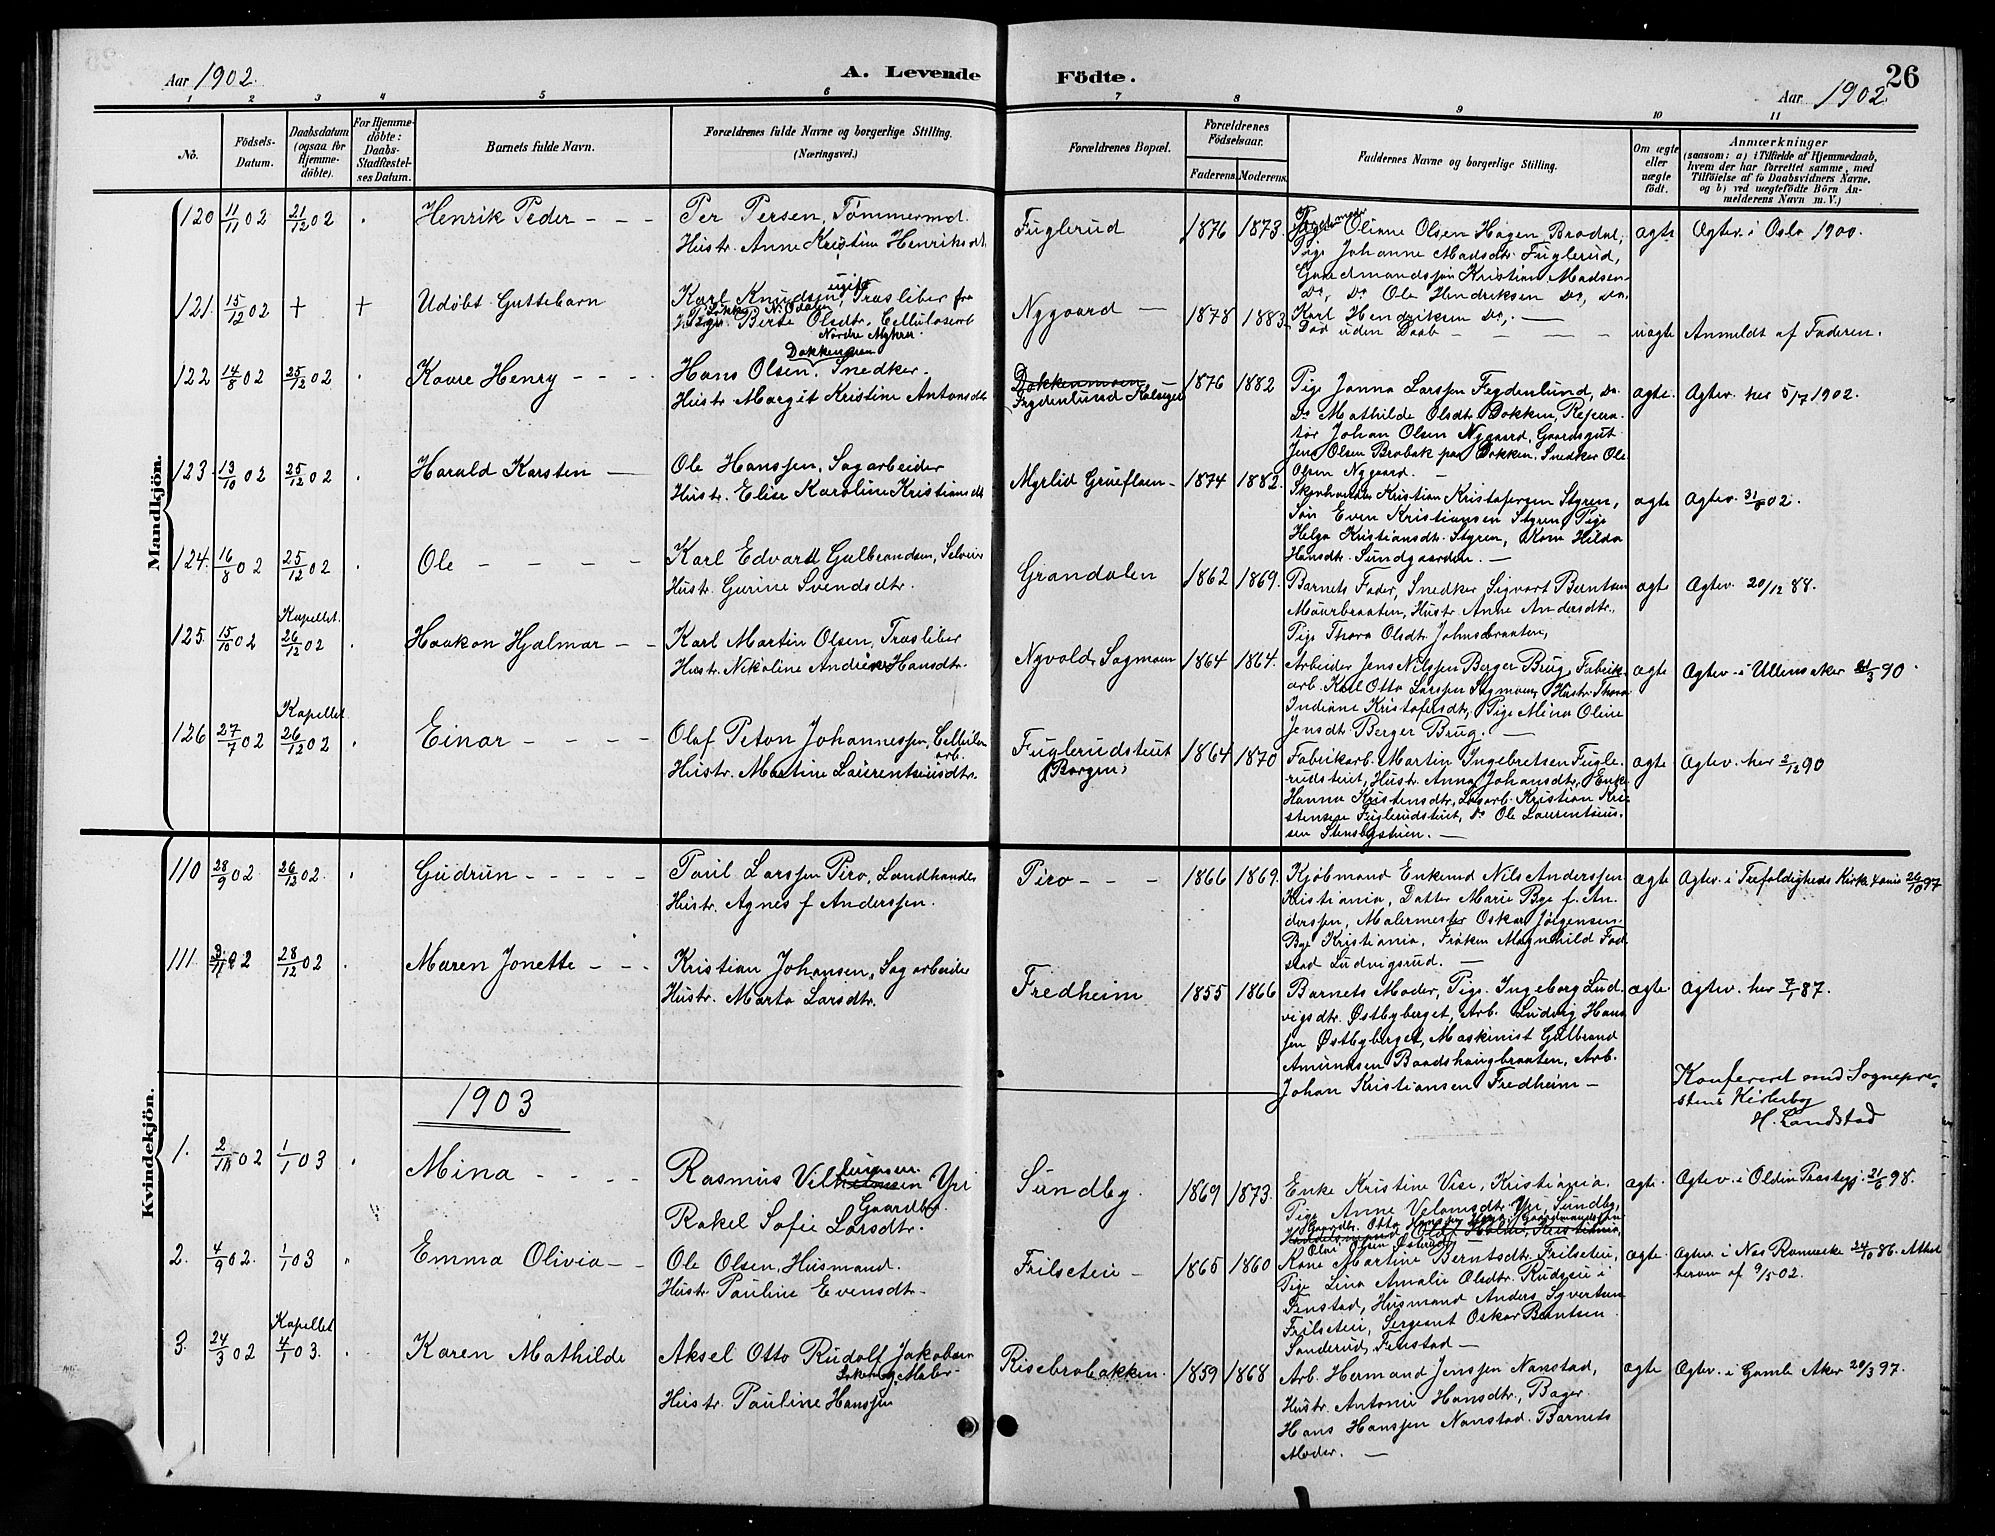 Aar 1902.
A. Levende Födte.
Aar 1902.
26
1 2 3 4 5 6 7 8 9 10 11
No.
Födsels-
Datum.
Daabsdatum
(ogsaa for
Hjemme-
döbte).
For Hjemme-
döbte:
Daabs-
Stadfæstel-
ses Datum.
Barnets fulde Navn.
Forældrenes fulde Navne og borgerlige Stilling.
(Næringsvei.)
Forældrenes Bopæl.
Forældrenes
Födselsaar.
Faderens. Moderens.
Faddernes Navne og borgerlige Stilling.
Om ægte
eller
uægte
födt.
Anmærkninger
(saasom: a) i Tilfælde af Hjemmedaab,
hvem der har forrettet samme, med
Tilföielse af to Daabsvidners Navne.
og b) ved uægtefödte Börn An-
melderens Navn m. V.)
Mandkjön.
120 11/11 02 21/12 02 Henrik Peder - - -
Per Persen, Tømmermd.
Hustr. Anne Kristine Henriksdt.
Fuglerud
1876 1873
Oliane Olsen Hagen Brødal,
Pige Johanne Madsdtr. Fuglerud,
Gaardmandssøn Kristian Madsen
Do, Do Ole Hendriksen Do, Do,
Karl Hendriksen Do, —
ægte
Ægtev. i Oslo 1900.
121. 15/12 02 + + Udøbt Guttebarn
Karl Knudsen, ugift, Træsliber fra
N. Odalen
Pige Berte Olsdtr. Cellulosearb
Nordre Myhrer
Nygaard —
1878 1883.
Død uden Daab - - - -
uægte
Anmeldt af Faderen.
122 14/8 02 25/12 02 Kaare Henry - - -
Dokkenmoen
Hans Olsen, Snedker.
Hustr Margit Kristine Antonsdtr
Dokkenmoen —
Fegdenlund
1876 1882
Pige Janna Larssen Fegdenlund, Do.
Do Mathilde Olsdtr. Dokken, Repera-
tør Johan Olsen Nygaard, Gaardsgut
Jens Olsen Brobak paa Dokken, Snedker Ole
Olsen Nygaard. —
ægte.
Ægtev. her 5/7 1902.
123. 13/10 02 25/12 02 Harald Karsten —
Ole Hanssen, Sagarbeider
Hustr. Elise Karoline Kristiansdt
Myrlid
1874 1882.
Kristian Kristofersen Styren,
Søn Even Kristiansen Styren, Pige
Helga Kristiansdtr. Styren, Kone Hilda
Hansdtr. Sundgaarden. —
ægte
Ægtev. 31/8 02.
124. 16/8 02 25/12 02 Ole - - - -
Karl Edvardt Gulbrandsen, Selveier
Hustr. Gurine Svendsdtr.
Grandalen
1862 1869.
Barnets Fader, Snedker Sigvart Berntsen
Maurbraaten, Hustr. Anne Andersdtr.,
Pige Thora Olsdtr. Johnsbraaten,
ægte
Ægtev. 20/12 88.
125. 15/10 02 Kapellet. 26/12 02 Haakon Hjalmar - -
Karl Martin Olsen, Træsliber
Hustr. Nikoline Andrea Hansdtr.
Nyvold, Sagmoen
1864 1864.
Arbeider Jens Nilssen Berger Brug, Fabrik-
arb. Karl Otto Larssen Sagmoen, Hustr. Thora
Indiane Kristofersdtr., Pige Mina Oline
Jensdtr. Berger Brug. —
ægte
Ægtev. i Ullensaker 21/3 90.
126 27/7 02 Kapellet 26/12 02 Einar - - - -
Olaf Peton Johannessen, Cellulose
arb.
Hustr. Martine Laurentsiusdtr.
Fuglerudstuit
(Borgen)
1864 1870
Fabrikarb. Martin Ingebretsen Fugle-
rudstuit, Hustr. Anna Johansdtr., Enke
Hanna Kristensdtr., Løsarb. Kristian Kri-
stensen Fuglerudstuit, Do Ole Laurentsius-
sen Stensbystuen. —
ægte
Ægtev. her 2/12 90
Kvindekjön.
110 28/9 02 26/12 02. Gudrun - - - - -
Paul Larssen Piro, Landhandler
Hustr. Agnes f. Anderssen.
Piro - - -
1866 1869.
Kjøbmand Enkemd Nils Anderssen
Kristiania, Datter Marie Bye f. An-
derssen, Malermester Oskar Jørgensen
Bye Kristiania, Frøken Magnhild Fad-
stad Ludvigsrud. —
ægte
Ægtev. i Trefoldigheds Kirke X.ania 26/10 97
111. 3/11 02 28/12 02 Maren Jonette - - -
Kristian Johansen, Sagarbeider
Hustr. Marta Larsdtr.
Fredheim
1855 1866
Barnets Moder, Pige Ingeborg Lud-
vigsdtr. Østbyberget, Arb. Ludvig Hans-
sen Østbyberget, Maskinist Gulbrand
Amundsen Baadshaugbraaten, Arb.
Johan Kristiansen Fredheim —
ægte.
Ægtev. her 7/1 87.
Konfereret med Sognepre-
stens Kirkebog
H. Landstad
1903
1. 2/11 02 1/1 03 Mina - - - -
Rasmus Yri
Gaardbr.
Rakel Sofie Larsdtr.
Sundby.
1869 1873.
Enke Kristine Vise, Kristiania,
Pige Anne Yri, Sundby,
ægte.
Ægtev. i Olden Præstegj. 21/6 98.
2. 4/9 02. 1/1 03 Emma Olivia - -
Ole Olsen, Husmand.
Hustr Pauline Evensdtr -
Frilseteie -
1865 1860
Kone Martine Berntsdtr. Frilseteie,
Pige Lina Amalie Olsdtr. Rudseie i
Fenstad, Husmand Anders Syvertsen
Frilseteie, Sergeant Oskar Berntsen
Sanderud, Fenstad —
ægte.
Ægtev. i Nes Romerike 24/10 86. Attest
herom af 9/5 02.
3. 24/3 02 Kapellet 4/1 03. Karen Mathilde
Aksel Otto Rudolf Jakobsen
Maler
Hustr Pauline Hanssen
Risebrobakken.
1859 1868
Arb. Hermand Jenssen Nanstad,
Hustr. Antonie Hansdtr., Bager
Hans Hanssen Nanstad. Barnets
Moder. —
ægte
Ægtev. i Gamle Aker 20/3 97.